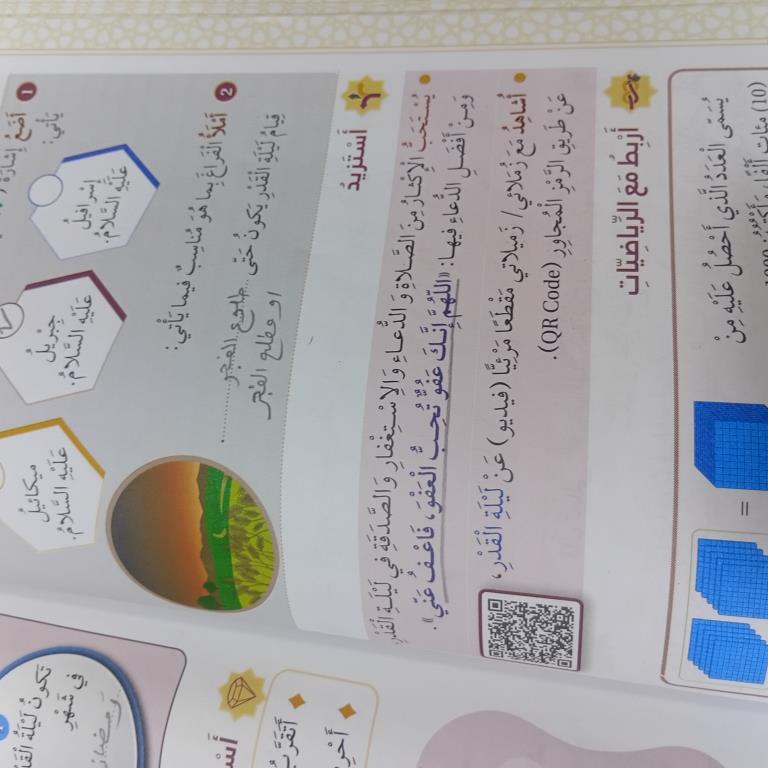 1 أَضَعُ إِشَارَةَ (
يَأْتِي:
إِسْرافيلُ
عَلَيْهِ السَّلامُ.
جِبْريلُ
عَلَيْهِ السَّلامُ.
ميكائيلُ
عَلَيْهِ السَّلامُ.
2 أَمْلَأُ الْفَراغَ بِما هُوَ مُناسِبٌ فيما يَأْتي:
قِيامُ لَيْلَةِ الْقَدْرِ يَكونُ حَتّى ..طلوع الفجر..
او مطلع الفجر
أَسْتَزيدُ
يُسْتَحَبُّ الْإِكْثارُ مِنَ الصَّلاةِ وَالدُّعاءِ وَالِاسْتِغْفارِ وَالصَّدَقَةِ في لَيْلَةِ الْقَدْرِ
وَمِنْ أَفْضَلِ الدُّعاءِ فيها: «اللَّهُمَّ إِنَّكَ عَفُوٌّ تُحِبُّ الْعَفْوَ، فَاعْفُ عَنّي».
أُشاهِدُ مَعَ زُمَلائي/ زَميلاتي مَقْطَعًا مَرْئِيًّا (فيديو) عَنْ لَيْلَةِ الْقَدْرِ،
عَنْ طَريقِ الرَّمْزِ الْمُجاوِرِ (QR Code).
أَرْبِطُ مَعَ الرِّياضِيّاتِ
يُسَمّى الْعَدَدُ الَّذي أَحْصُلُ عَلَيْهِ مِنْ
(10) مِئاتٍ
=
تَكونُ لَيْلَةُ
في شَهْرِ
رمضان